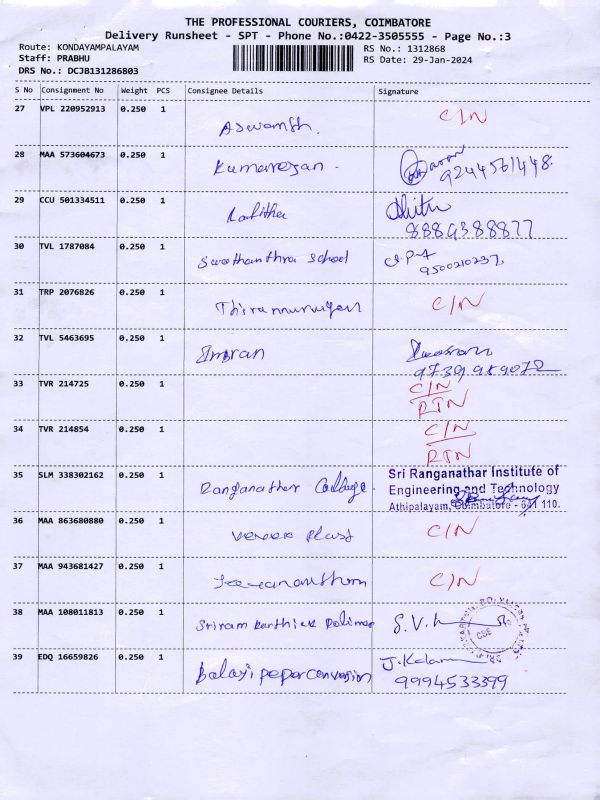 THE PROFESSIONAL COURIERS, COIMBATORE
Delivery Runsheet - SPT - Phone No.:0422-3505555 - Page No.:3
Route: KONDAYAMPALAYAM RS No.: 1312868
Staff: PRABHU RS Date: 29-Jan-2024
DRS No.: DCJB131286803
S No Consignment No Weight PCS Consignee Details Signature
27 VPL 220952913 0.250 1 C/N
Aswanth.
28 MAA 573604673 0.250 1 Kumaresan. 9244561448.
29 CCU 501334511 0.250 1 Lalitha
8889388877
30 TVL 1787084 0.250 1 Swathanthra School
9500210237.
31 TRP 2076826 0.250 1 Thirumurugan C/N
32 TVL 5463695 0.250 1 Imran
9739989072
33 TVR 214725 0.250 1 C/N
RTN
34 TVR 214854 0.250 1 C/N
RTN
35 SLM 338302162 0.250 1 Ranganathar College. Sri Ranganathar Institute of
Engineering and Technology
Athipalayam, Coimbatore - 641 110.
36 MAA 863680880 0.250 1 Plast C/N
37 MAA 943681427 0.250 1 Jeevananthom C/N
38 MAA 108011813 0.250 1 Sriram Karthick Polimer S.V.
CBE
39 EDQ 16659826 0.250 1 Balaji peper convesion J.Kalam
9994533399